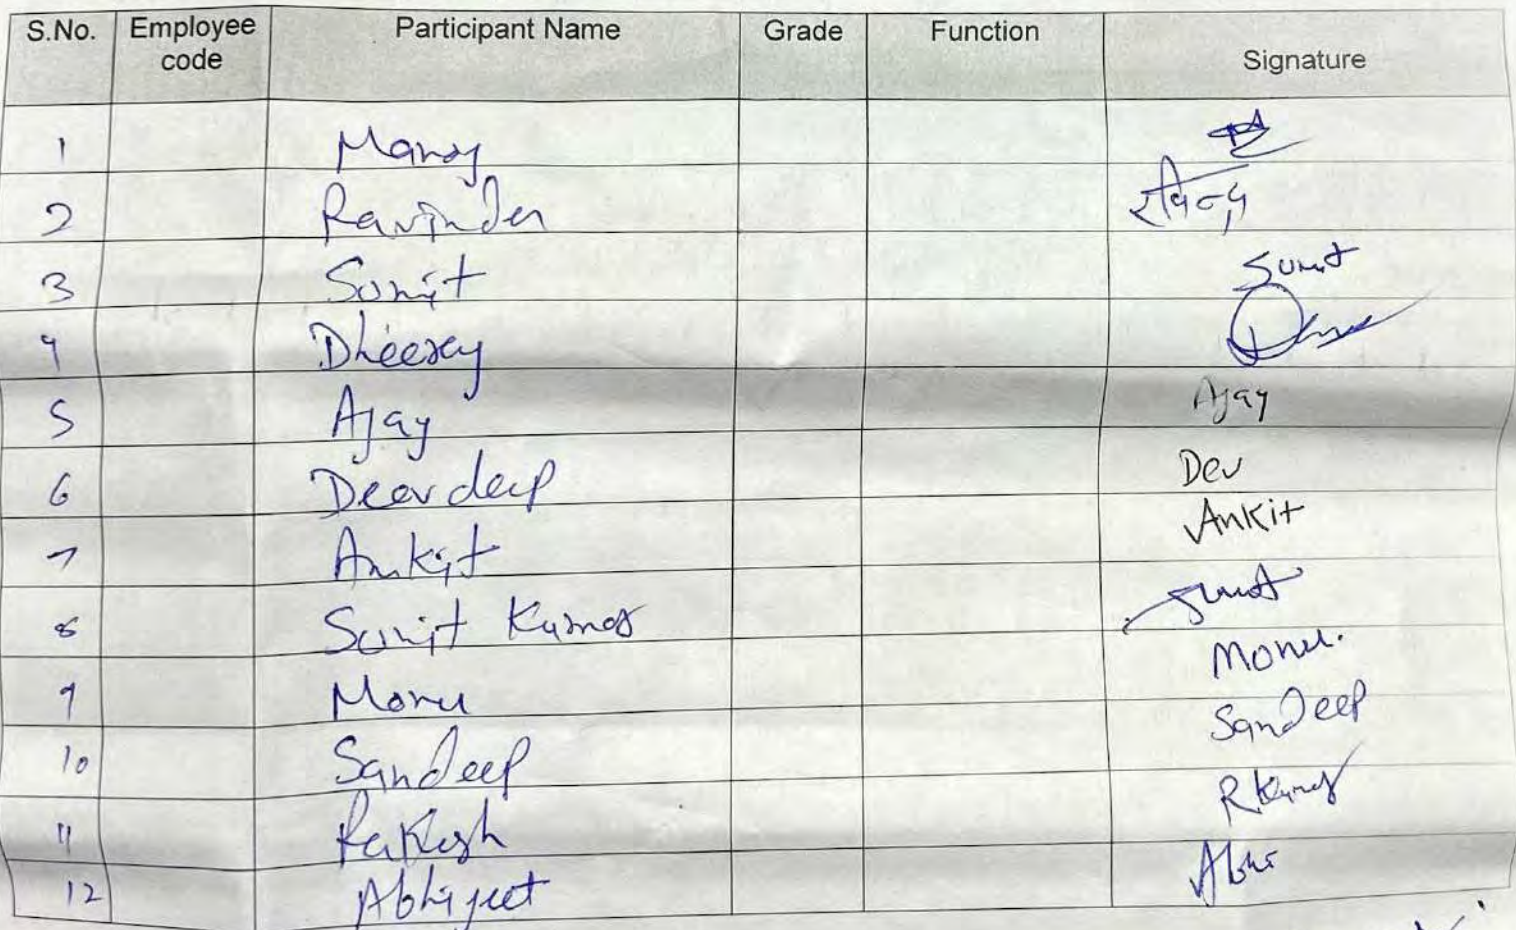 S.No. Employee code Participant Name Grade Function Signature
1 Manoj
2 Ravinder रविन्द्र
3 Sumit Sumit
4 Dheeraj
5 Ajay Ajay
6 Deevdeep Dev
7 Ankit Ankit
8 Sumit Kumar Sumit
9 Monu Monu.
10 Sandeep Sandeep
11 Rakesh R Kumar
12 Abhijeet Abhi